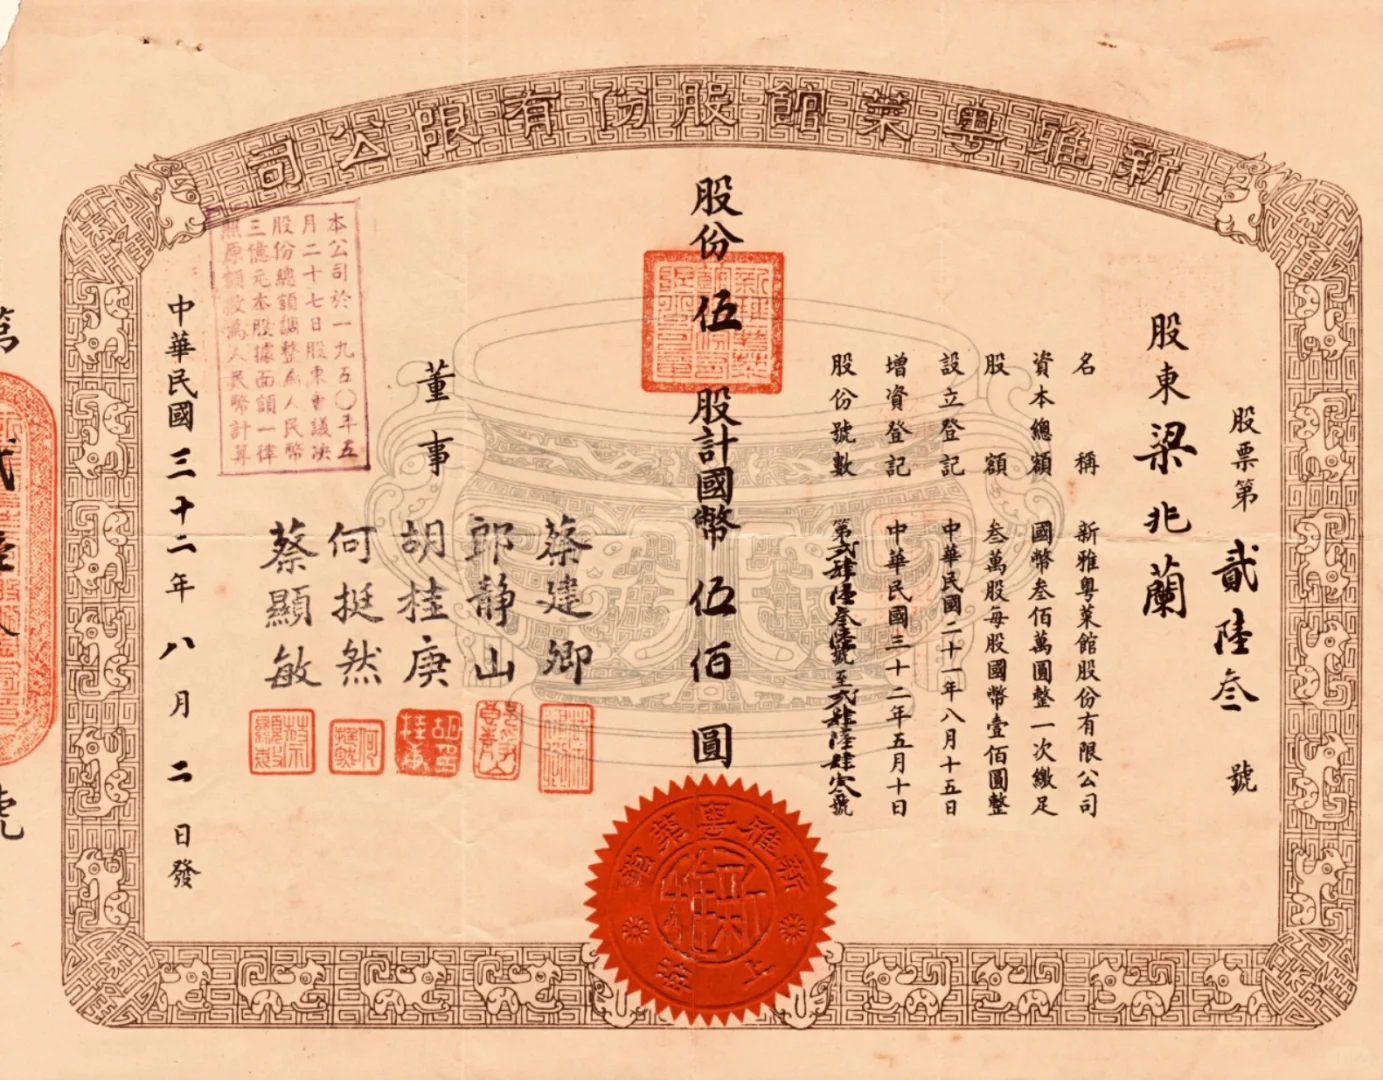 新雅粵菜館股份有限公司
股票第貳陸叁號
股東梁兆蘭
名稱 新雅粵菜館股份有限公司
資本總額 國幣叁佰萬圓整一次繳足
股額 叁萬股每股國幣壹佰圓整
設立登記 中華民國二十一年八月十五日
增資登記 中華民國三十二年五月十日
股份號數
股份伍股計國幣伍佰圓
董事
蔡建卿
郎靜山
胡桂庚
何挺然
蔡顯敏
中華民國三十二年八月二日發
本公司於一九五〇年五
月二十七日股東會議決
股份總額調整為人民幣
三億元本股據面額一律
照原額改為人民幣計算
新雅粵菜館
新雅
上海